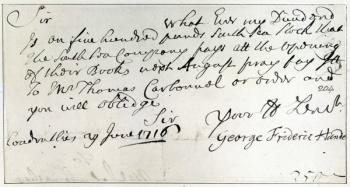 Sir What Ever my Dividend
Is on five hundred pounds South Sea Stock that
The South Sea Company pays att the opening
of their Books next August pray pay
To Mr Thomas Carbonnel or order and
you will obblidge
Sir
29 June 1716
George Frideric Hande